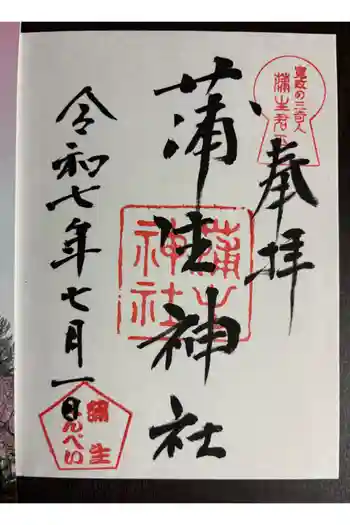 寛政の三奇人
蒲生君平
奉拝
蒲生神社
蒲生神社
令和七年七月一日
蒲生
くんぺい